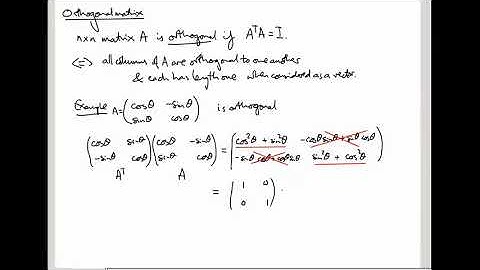 Orthogonal matrix
n×n matrix A is orthogonal if AᵀA = I.
⟺ all columns of A are orthogonal to one another
& each has length one when considered as a vector.
Example A = (cosθ -sinθ
sinθ cosθ) is orthogonal
(cosθ sinθ
-sinθ cosθ) (cosθ -sinθ
sinθ cosθ) = (cos²θ + sin²θ -cosθ sinθ + sinθ cosθ
-sinθ cosθ + cosθ sinθ sin²θ + cos²θ)
Aᵀ A
= (1 0
0 1).